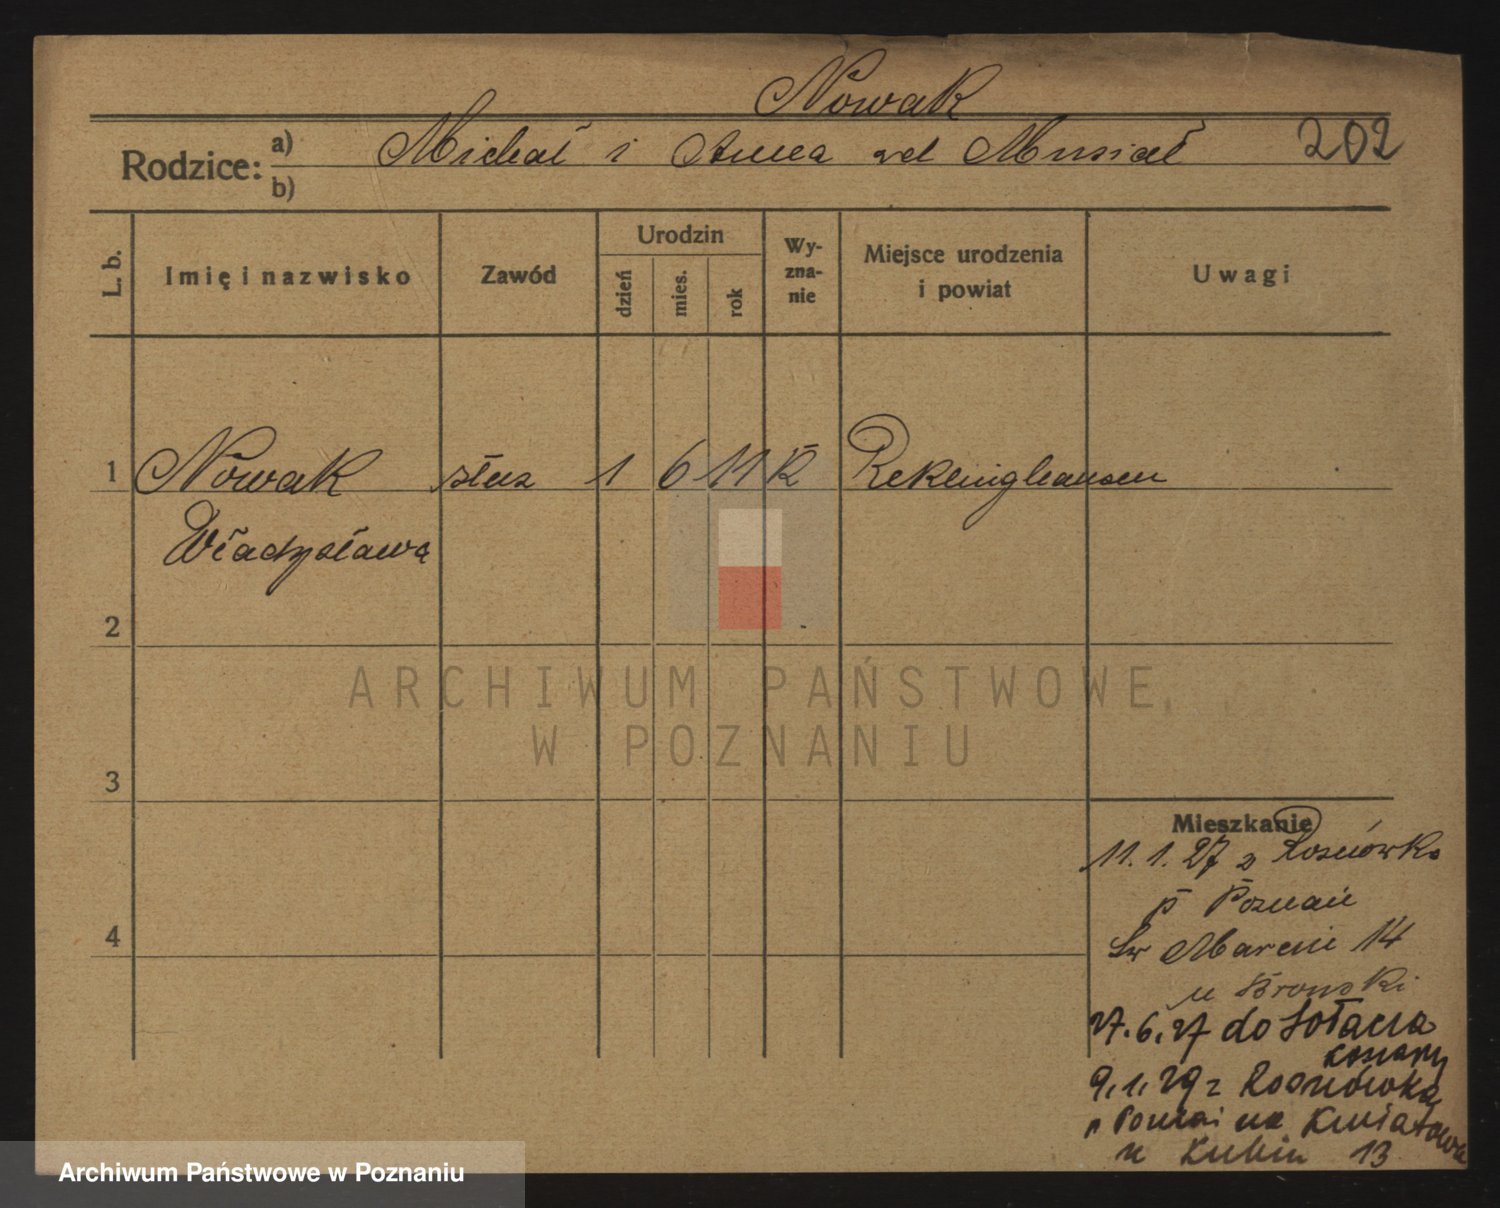 Nowak
Rodzice: a) Michał i Anna zd Musiał 202
b)
L. b. Imię i nazwisko Zawód Urodzin dzień mies. rok Wyznanie Miejsce urodzenia i powiat Uwagi
1 Nowak służ 1 6 11 k Reklinghausen
Władysława
2
3
4
Mieszkanie
11. 1. 27 z Rosnówko
p Poznań
Św Marcin 14
u Bronski
27. 6. 27 do Sołacza
koszary
9. 1. 29 z Rosnówka
p Poznań na Kwiatowa
u Kubin 13
ARCHIWUM PAŃSTWOWE
W POZNANIU
Archiwum Państwowe w Poznaniu